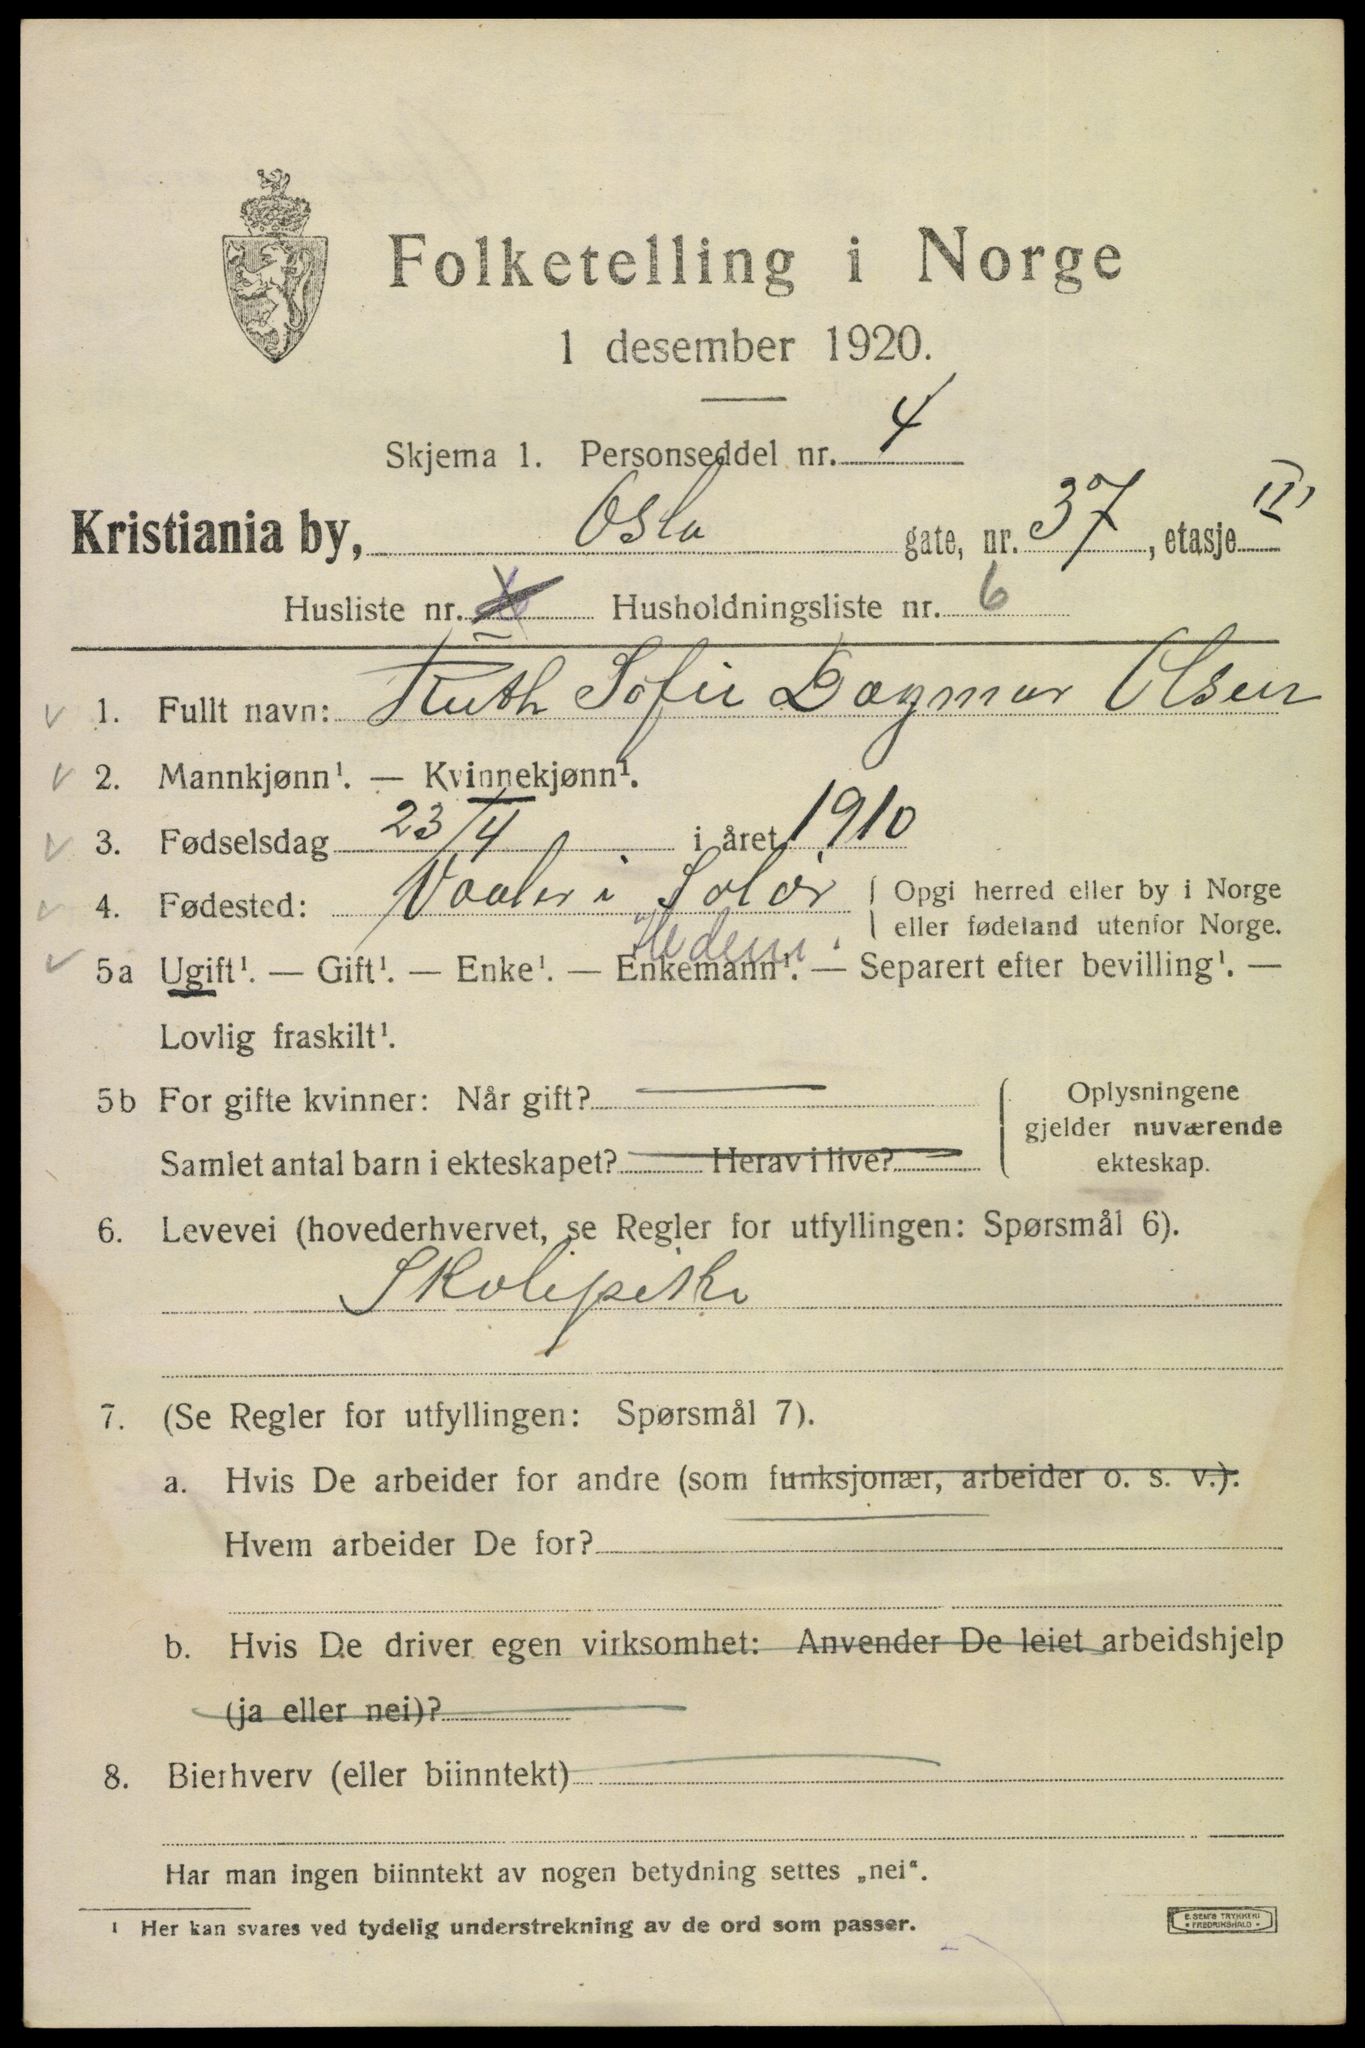 Folketelling i Norge
1 desember 1920.
Skjema 1. Personseddel nr. 4
Kristiania by, Oslo gate, nr. 37, etasje III
Husliste nr. Husholdningsliste nr. 6
1. Fullt navn: Ruth Sofie Dagmar Olsen
2. Mannkjønn¹. — Kvinnekjønn¹.
3. Fødselsdag 23/4 i året 1910
4. Fødested: Vaaler i Solør
Opgi herred eller by i Norge
eller fødeland utenfor Norge.
Hedem.
5a Ugift¹. — Gift¹. — Enke¹. — Enkemann¹. — Separert efter bevilling¹. —
Lovlig fraskilt¹.
5b For gifte kvinner: Når gift?
Samlet antal barn i ekteskapet? Herav i live?
Oplysningene
gjelder nuværende
ekteskap.
6. Levevei (hovederhvervet, se Regler for utfyllingen: Spørsmål 6).
Skolepike
7. (Se Regler for utfyllingen: Spørsmål 7).
a. Hvis De arbeider for andre (som funksjonær, arbeider o. s. v.):
Hvem arbeider De for?
b. Hvis De driver egen virksomhet: Anvender De leiet arbeidshjelp
(ja eller nei)?
8. Bierhverv (eller biinntekt)
Har man ingen biinntekt av nogen betydning settes „nei“.
¹ Her kan svares ved tydelig understrekning av de ord som passer.
E. SEM'S TRYKKERI
• FREDRIKSHALD •